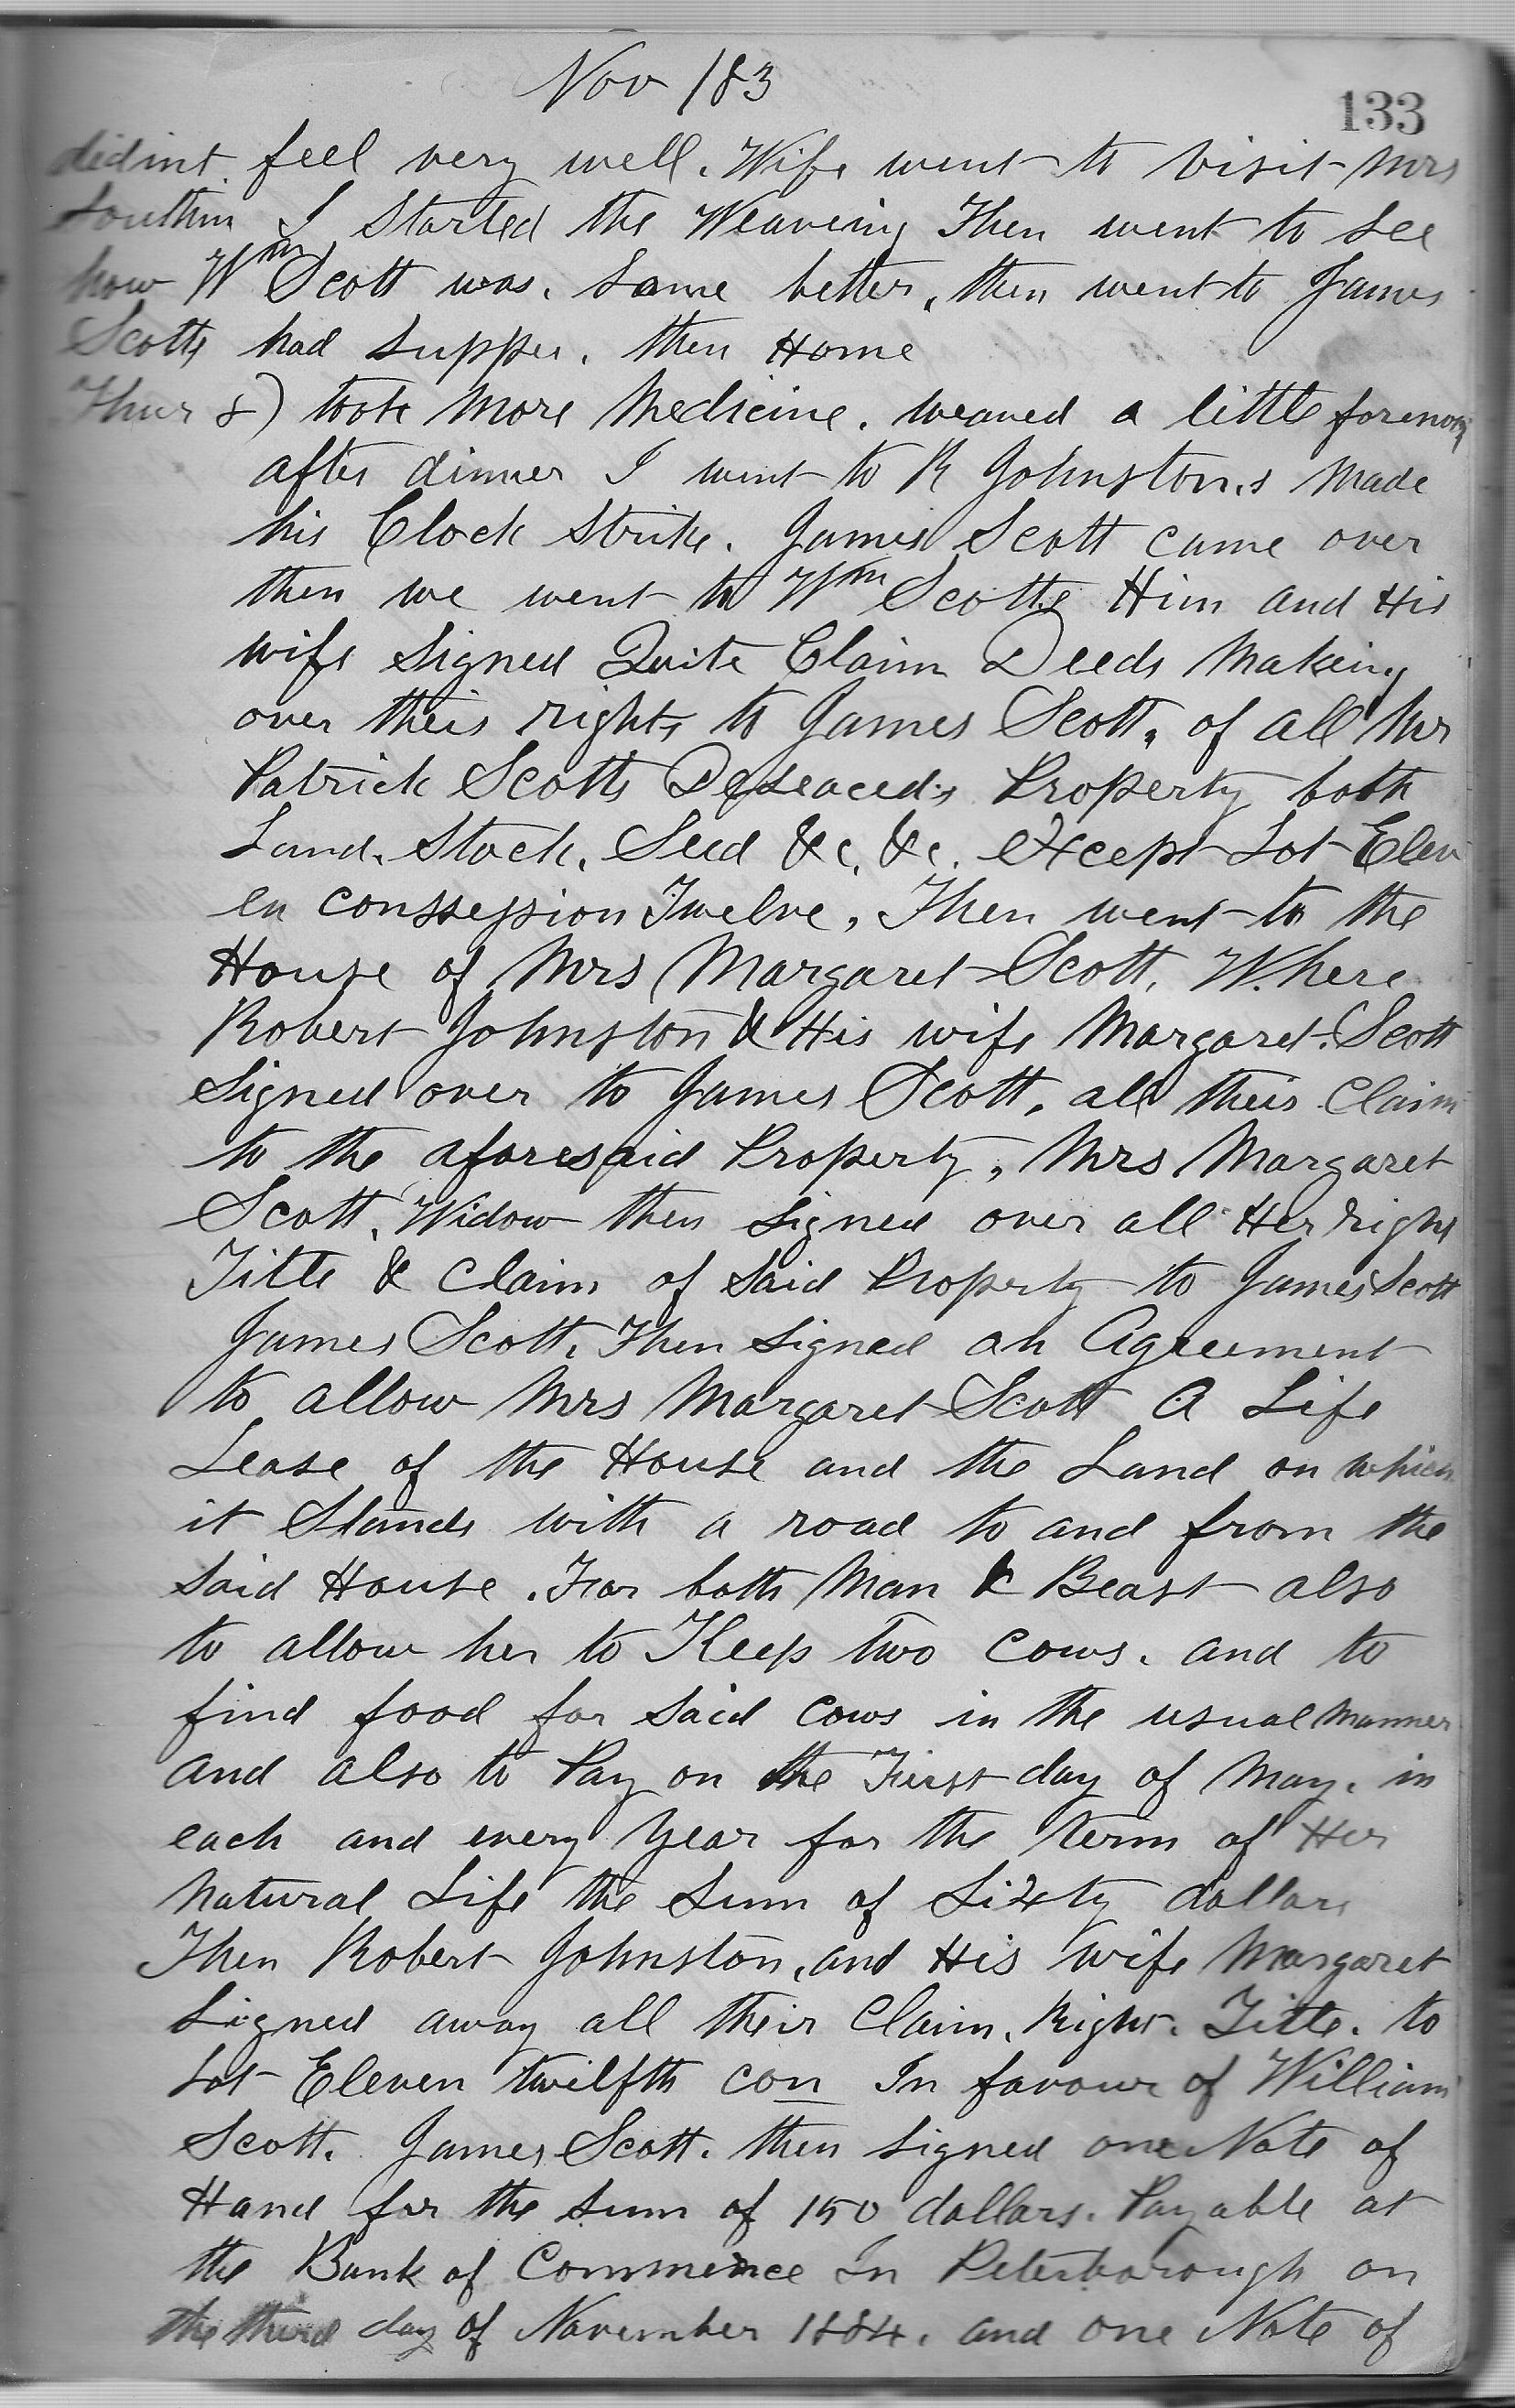 Nov /83
133
didint feel very well. Wife went to visit Mrs
Southin I Started the Weaving Then went to see
how Wm Scott was. Some better, then went to James
Scotts had supper. then Home
Thur 8) took More Medicine. weaved a little forenoon
after dinner I went to R Johnston,s Made
his Clock Strike. James Scott came over
then we went to Wm Scotts Him and His
wife Signed Quite Claim Deeds Making
over their rights to James Scott, of all Mr
Patrick Scotts Deseaced,s Property both
Land. Stock. Seed &c, &c. except Lot Elev
en conssession Twelve, Then went to the
House of Mrs Margaret Scott, Where
Robert Johnston & His wife Margaret Scott
Signed over to James Scott, all their Claim
to the aforesaid Property, Mrs Margaret
Scott, Widow then signed over all Her right
Title & Claim of said Property to James Scott
James Scott. Then signed an Agreement
to allow Mrs Margaret Scott A Life
Lease of the House and the Land on which
it Stands with a road to and from the
Said House. For both Man & Beast also
to allow her to Keep two cows. and to
find food for said cows in the usual manner
and also to Pay on the First day of May. in
each and every year for the term of Her
Natural Life the Sum of Sixty dollars
Then Robert Johnston, and His wife Margaret
Signed away all their Claim. Right. Title. to
Lot Eleven twilfth con In favour of William
Scott. James Scott. then signed one Note of
Hand for the sum of 150 dollars. Payable at
the Bank of Commerce In Peterborough on
the third day of November 1884. and one Note of